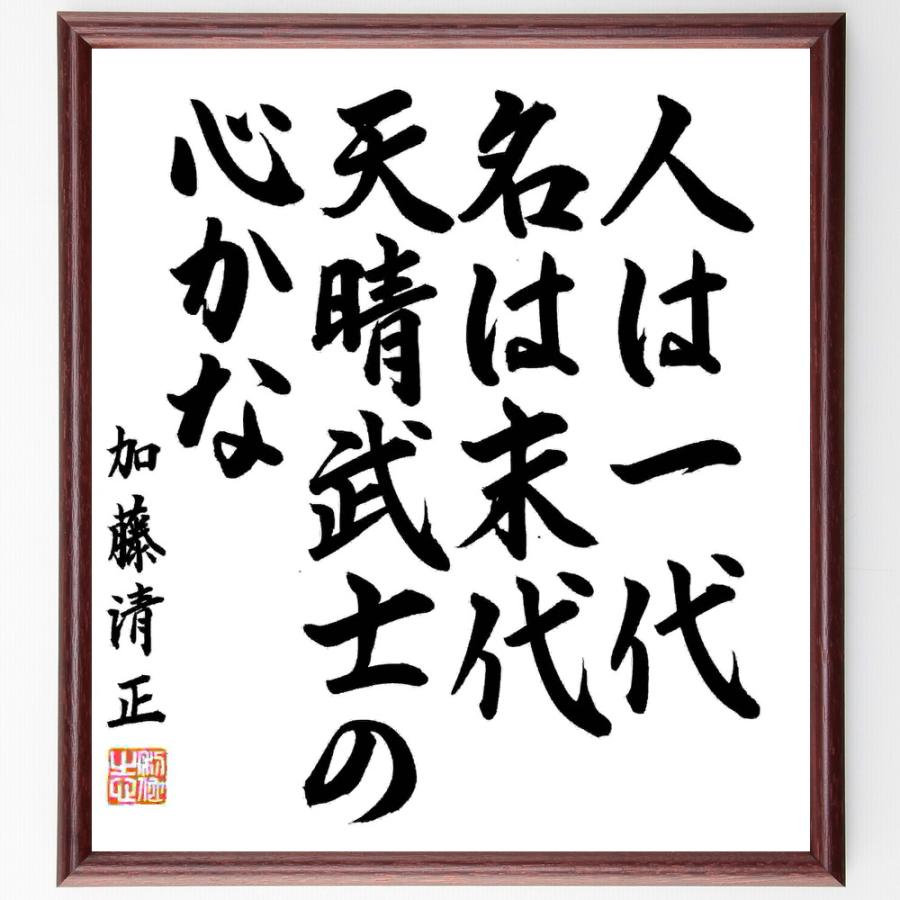 人は一代
名は末代
天晴武士の
心かな
加藤清正